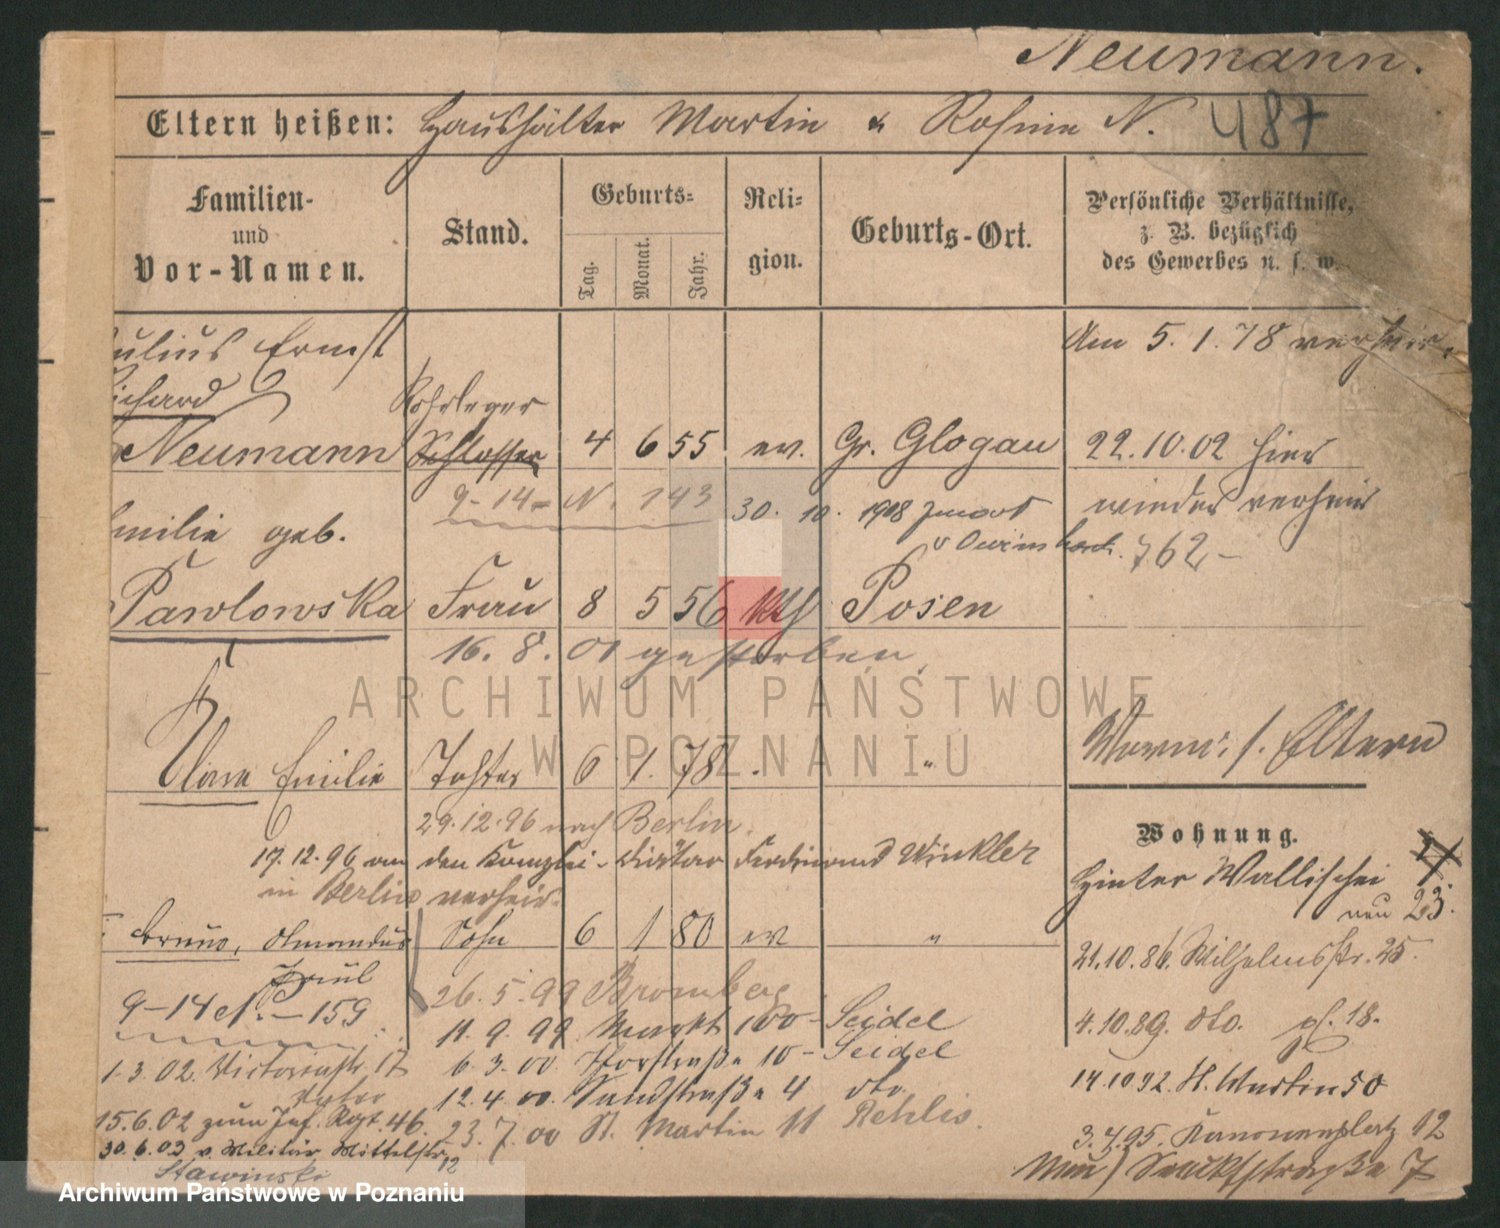 Neumann.
Eltern heißen: Haushälter Martin & Rosine N. 487
Familien- und Vor-Namen.
Stand.
Geburts=
Tag. Monat. Jahr.
Reli= gion.
Geburts-Ort.
Persönliche Verhältnisse, z. B. bezüglich des Gewerbes u. s. w.
ulius Ernst
ichard
Neumann
Rohrleger
Schlosser
4 6 55 ev. Gr. Glogau
Am 5.1.78 verheir.
22.10.02 hier
wieder verheir
762-
9-14- N. 143
30. 10. 1908
milie geb.
Pawlowska Frau 8 5 56 kth Posen
16. 8. 01 gestorben
Clara Emilie Tochter 6 1. 78 . "
29.12.96 nach Berlin.
17.12.96 an den Kanzlei-Diätar Ferdinand Winkler
in Berlin verheir.
Bruno, Amandus Sohn 6 1 80 ev "
Paul
9-14 N. - 159
26. 5. 99 Bromberg
11. 9. 99. Markt 100- Seidel
6. 3. 00. Thorstraße 10- Seidel
12. 4. 00. Sandstraße 4 dto.
23. 7. 00 St. Martin 11 Rehlis.
1.3.02. Victoriastr. 17
Vater
15.6.02 zum Inf. Rgt. 46.
30.6.03 v. Militär, Mittelstr. 12
Stawinski
s. Eltern
Wohnung.
Hinter Wallischei 4.
neu 23.
21.10.86. Wilhelmsstr. 25.
4.10.89. dto. pl. 18.
14.10 92. St. Martin 50
3.4.95. Kanonenplatz 12
Neu) Sandstraße 7
ARCHIWUM PAŃSTWOWE
W POZNANIU
Archiwum Państwowe w Poznaniu